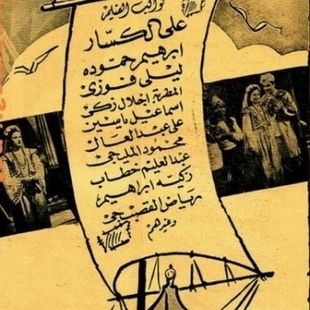 كواكب الفيلم
على الكسار
ابرهيم حموده
ليلى فوزى
المطربة إجلال زكى
اسماعيل ياسين
على عبد العال
محمود المليجى
عبد العليم خطاب
زكية ابراهيم
رياض القصبجى
وغيرهم